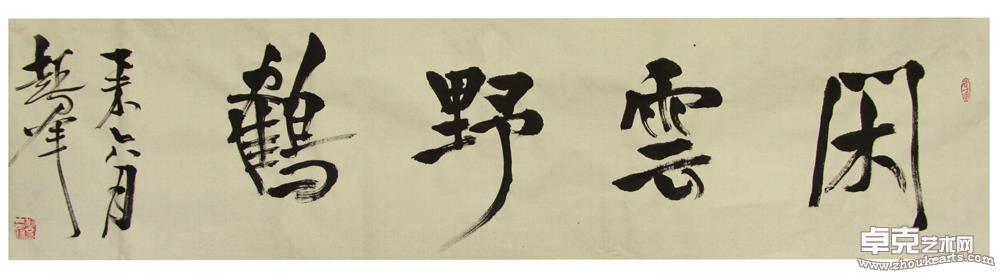 閑雲野鶴
未六月
卓克艺术网
www.zhoukearts.com